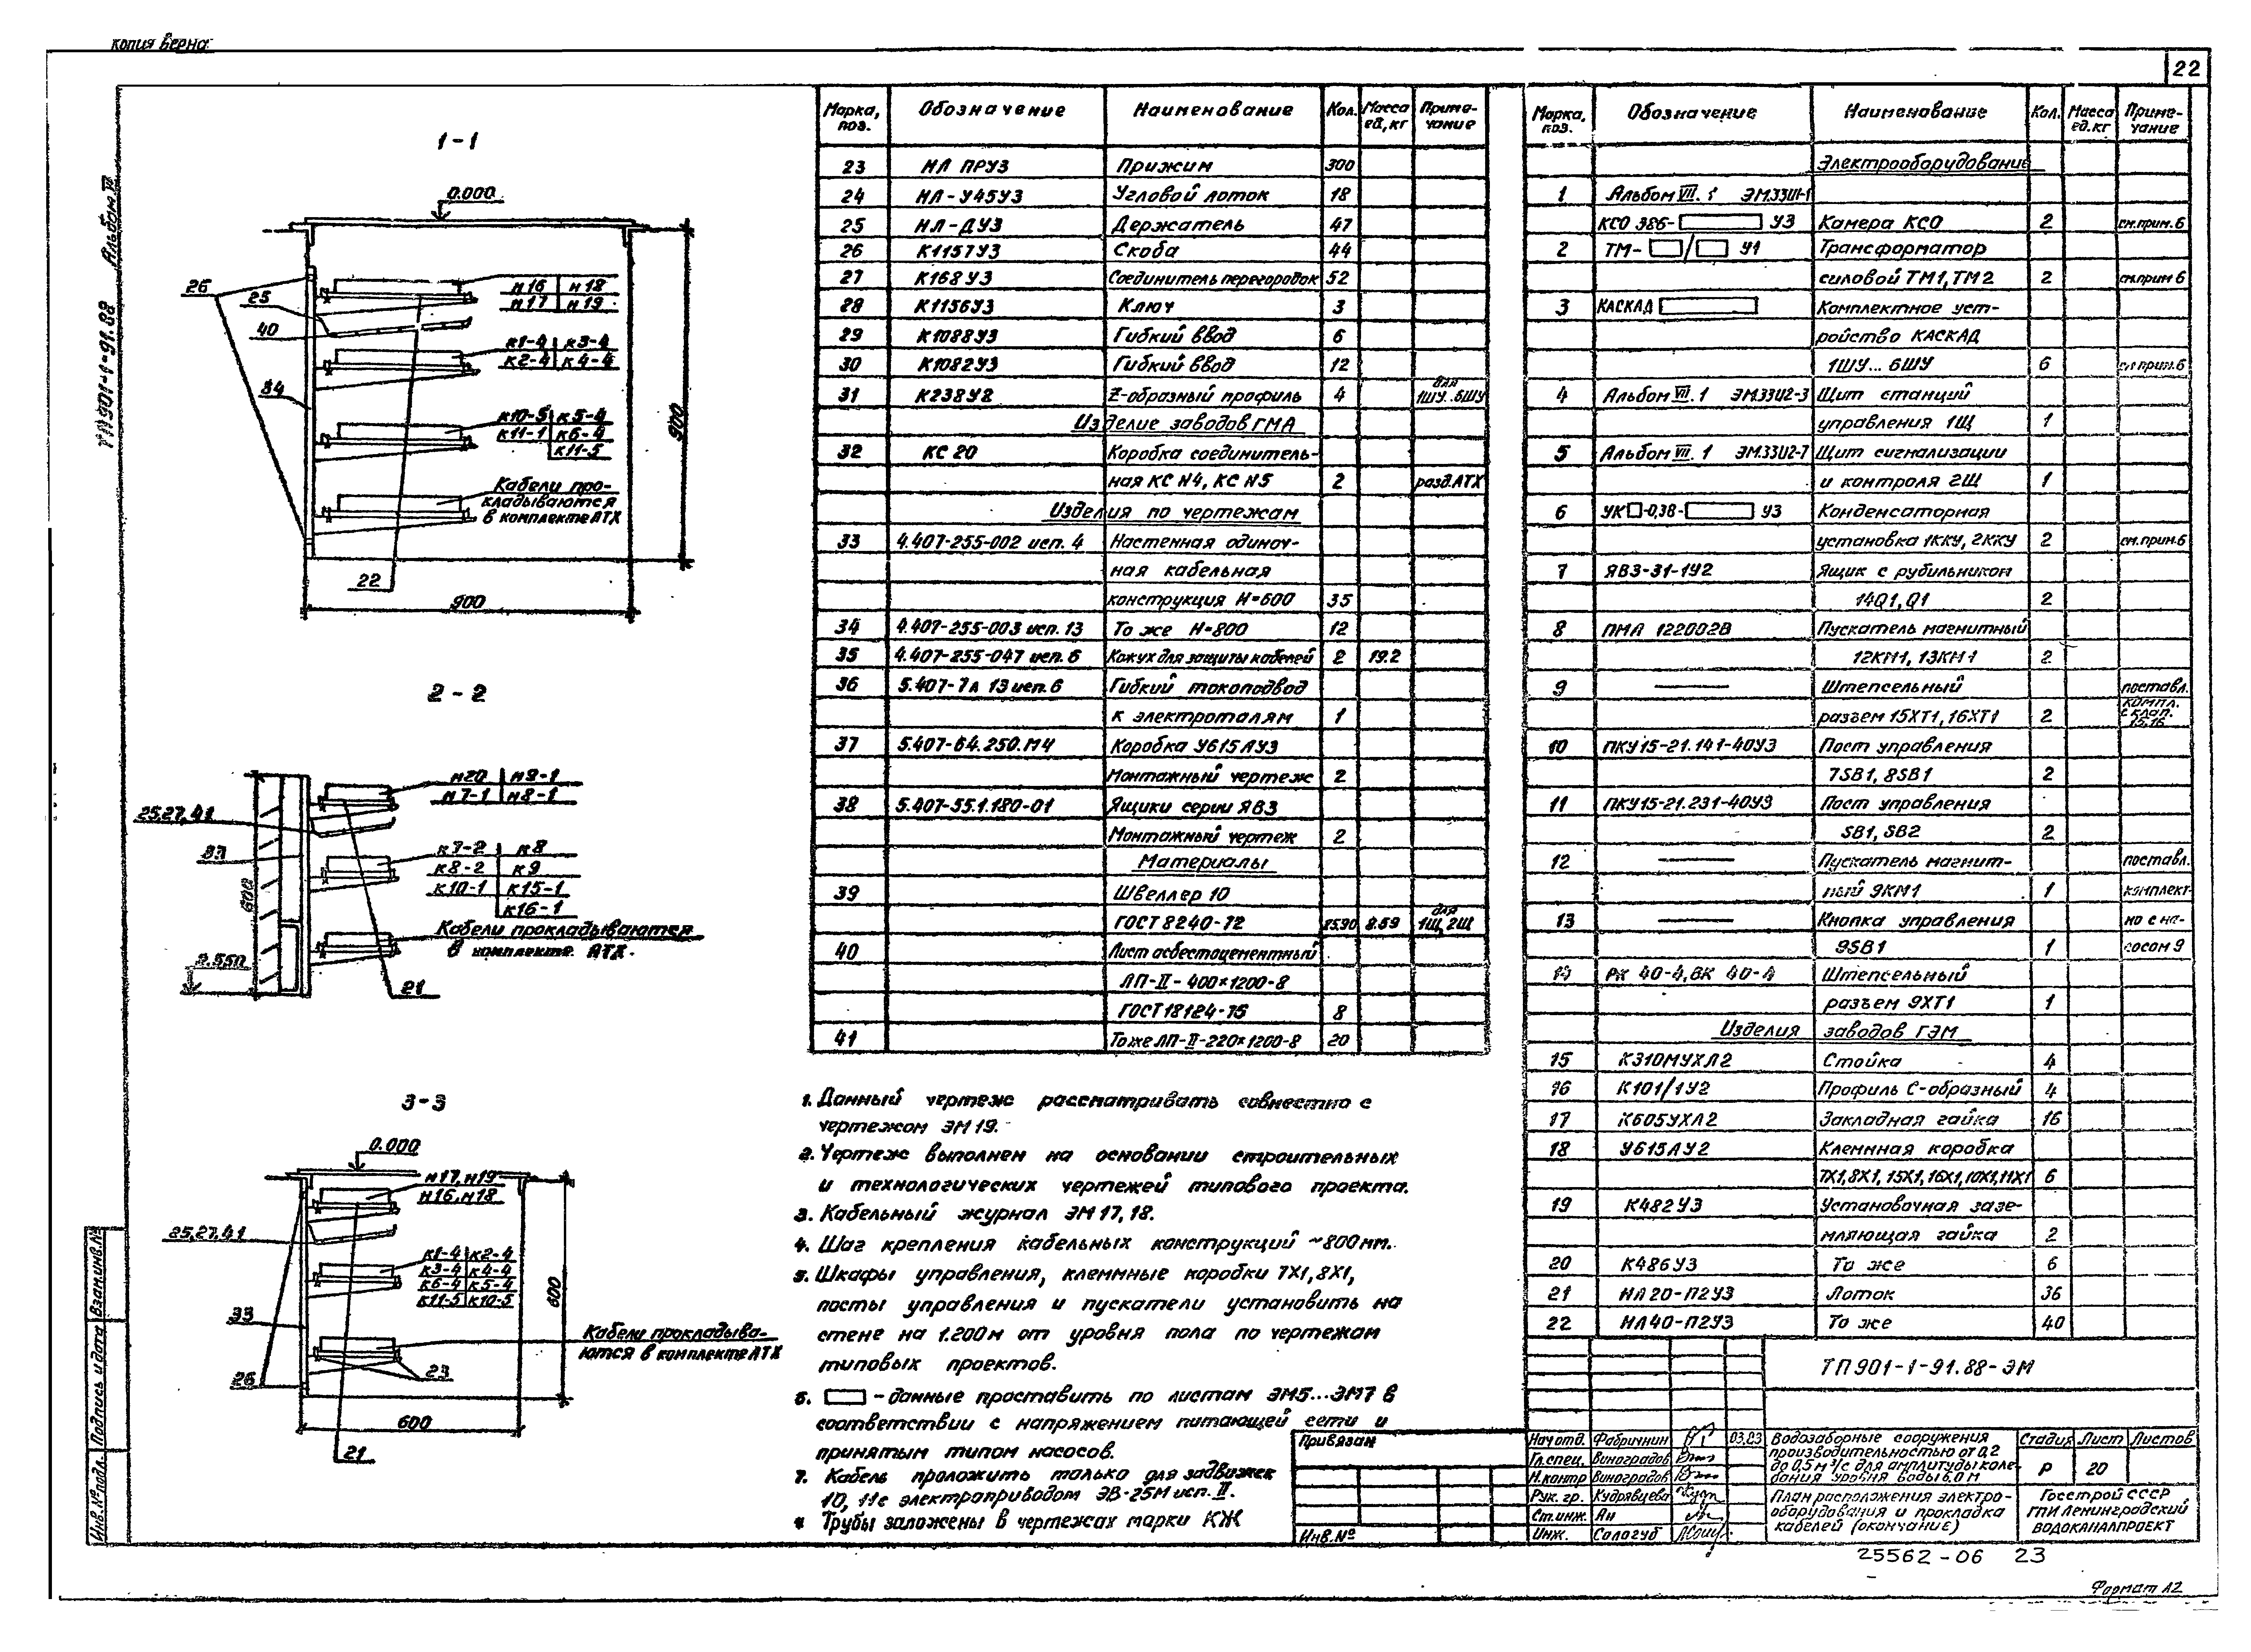 копия верна
22
ТП 901-1-91.88 Альбом VI
1-1
0.000
26
25
40
34
22
н16 н18
н17 н19
к1-4 к3-4
к2-4 к4-4
к10-5 к5-4
к11-1 к6-4
к11-5
Кабели про-
кладываются
в комплекте АТХ
900
900
2-2
25,27,41
600
н20 н9-1
н7-1 н8-1
к7-2 к8
к8-2 к9
к10-1 к15-1
к16-1
Кабели прокладываются
в комплекте АТХ.
21
3-3
0.000
н17, н19
н16, н18
25,27,41
к1-4 к2-4
к3-4 к4-4
к6-4 к5-4
к11-5 к10-5
33
26
23
21
Кабели прокладыва-
ются в комплекте АТХ
600
600
Марка, поз. Обозначение Наименование Кол. Масса ед, кг Приме-чание
23 НЛ ПРУ3 Прижим 300
24 НЛ-У45У3 Угловой лоток 18
25 НЛ-ДУ3 Держатель 47
26 К1157У3 Скоба 44
27 К168У3 Соединитель перегородок 52
28 К1156У3 Ключ 3
29 К1088У3 Гибкий ввод 6
30 К1082У3 Гибкий ввод 12
31 К238У2 Z-образный профиль 4 для 1ШУ..6ШУ
Изделие заводов ГМА
32 КС 20 Коробка соединитель-
ная КС N4, КС N5 2 разд. АТХ
Изделия по чертежам
33 4.407-255-002 исп. 4 Настенная одиноч-
ная кабельная
конструкция Н=600 35
34 4.407-255-003 исп. 13 То же Н=800 12
35 4.407-255-047 исп. 6 Кожух для защиты кабелей 2 19.2
36 5.407-7л 13 исп. 6 Гибкий токоподвод
к электроталям 1
37 5.407-64.250.М4 Коробка У615ЛУ3
Монтажный чертеж 2
38 5.407-55.1.180-01 Ящики серии ЯВЗ
Монтажный чертеж 2
Материалы
39 Швеллер 10
ГОСТ 8240-72 8.59 для 1Щ, 2Щ
40 Лист асбестоцементный
ЛП-II-400×1200-8
ГОСТ 18124-75 8
41 То же ЛП-II-220×1200-8 20
1. Данный чертеж рассматривать совместно с
чертежом ЭМ 19.
2. Чертеж выполнен на основании строительных
и технологических чертежей типового проекта.
3. Кабельный журнал ЭМ 17, 18.
4. Шаг крепления кабельных конструкций ~800мм.
5. Шкафы управления, клеммные коробки 7Х1, 8Х1,
посты управления и пускатели установить на
стене на 1.200м от уровня пола по чертежам
типовых проектов.
6. – данные проставить по листам ЭМ5...ЭМ7 в
соответствии с напряжением питающей сети и
принятым типом насосов.
7. Кабель проложить только для задвижек
10, 11 с электроприводом ЭВ-25М исп. II.
Трубы заложены в чертежах марки КЖ
Марка, поз. Обозначение Наименование Кол. Масса ед. кг Приме-чание
Электрооборудование
1 Альбом VII. 1 ЭМ.33И1-1
КСО 386- У3 Камера КСО 2 см.прим.6
2 ТМ- / У1 Трансформатор
силовой ТМ1, ТМ2 2 см.прим 6
3 КАСКАД Комплектное уст-
ройство КАСКАД
1ШУ...6ШУ 6 см прим.6
4 Альбом VII. 1 ЭМ.33И2-3 Щит станций
управления 1Щ 1
5 Альбом VII. 1 ЭМ.33И2-7 Щит сигнализации
и контроля 2Щ 1
6 УК -0,38- У3 Конденсаторная
установка 1ККУ, 2ККУ 2 см.прим.6
7 ЯВЗ-31-1У2 Ящик с рубильником
14Q1, Q1 2
8 ПМЛ 122002В Пускатель магнитный
12КМ1, 13КМ1 2
9 Штепсельный поставл.
разъем 15ХТ1, 16ХТ1 2 компл. с клап. 15,16
10 ПКУ15-21.141-40У3 Пост управления
7SB1, 8SB1 2
11 ПКУ15-21.231-40У3 Пост управления
SB1, SB2 2
12 Пускатель магнит- поставл.
ный 9КМ1 1 комплект-
13 Кнопка управления но с на-
9SB1 1 сосом 9
14 РК 40-4, ВК 40-4 Штепсельный
разъем 9ХТ1 1
Изделия заводов ГЭМ
15 К310МУХЛ2 Стойка 4
16 К101/1У2 Профиль С-образный 4
17 К605УХЛ2 Закладная гайка 16
18 У615ЛУ2 Клеммная коробка
7Х1, 8Х1, 15Х1, 16Х1, 10Х1, 11Х1 6
19 К482У3 Установочная зазе-
мляющая гайка 2
20 К486У3 То же 6
21 НЛ20-П2У3 Лоток 36
22 НЛ40-П2У3 То же 40
ТП 901-1-91.88-ЭМ
Привязан
Инв.№
Нач отд. Фабричнин 03.83
Гл. спец. Виноградов
Н.контр Виноградов
Рук. гр. Кудрявцева
Ст.инж. Ан
Инж. Сологуб
Водозаборные сооружения
производительностью от 0,2
до 0,5 м³/с для амплитуды коле-
дания уровня воды 6,0 м
План расположения электро-
оборудования и прокладка
кабелей (окончание)
Стадия Лист Листов
Р 20
Госстрой СССР
ГПИ Ленинградский
Водоканалпроект
Инв.№ подл. Подпись и дата Взам.инв.№
25562-06 23
Формат А2